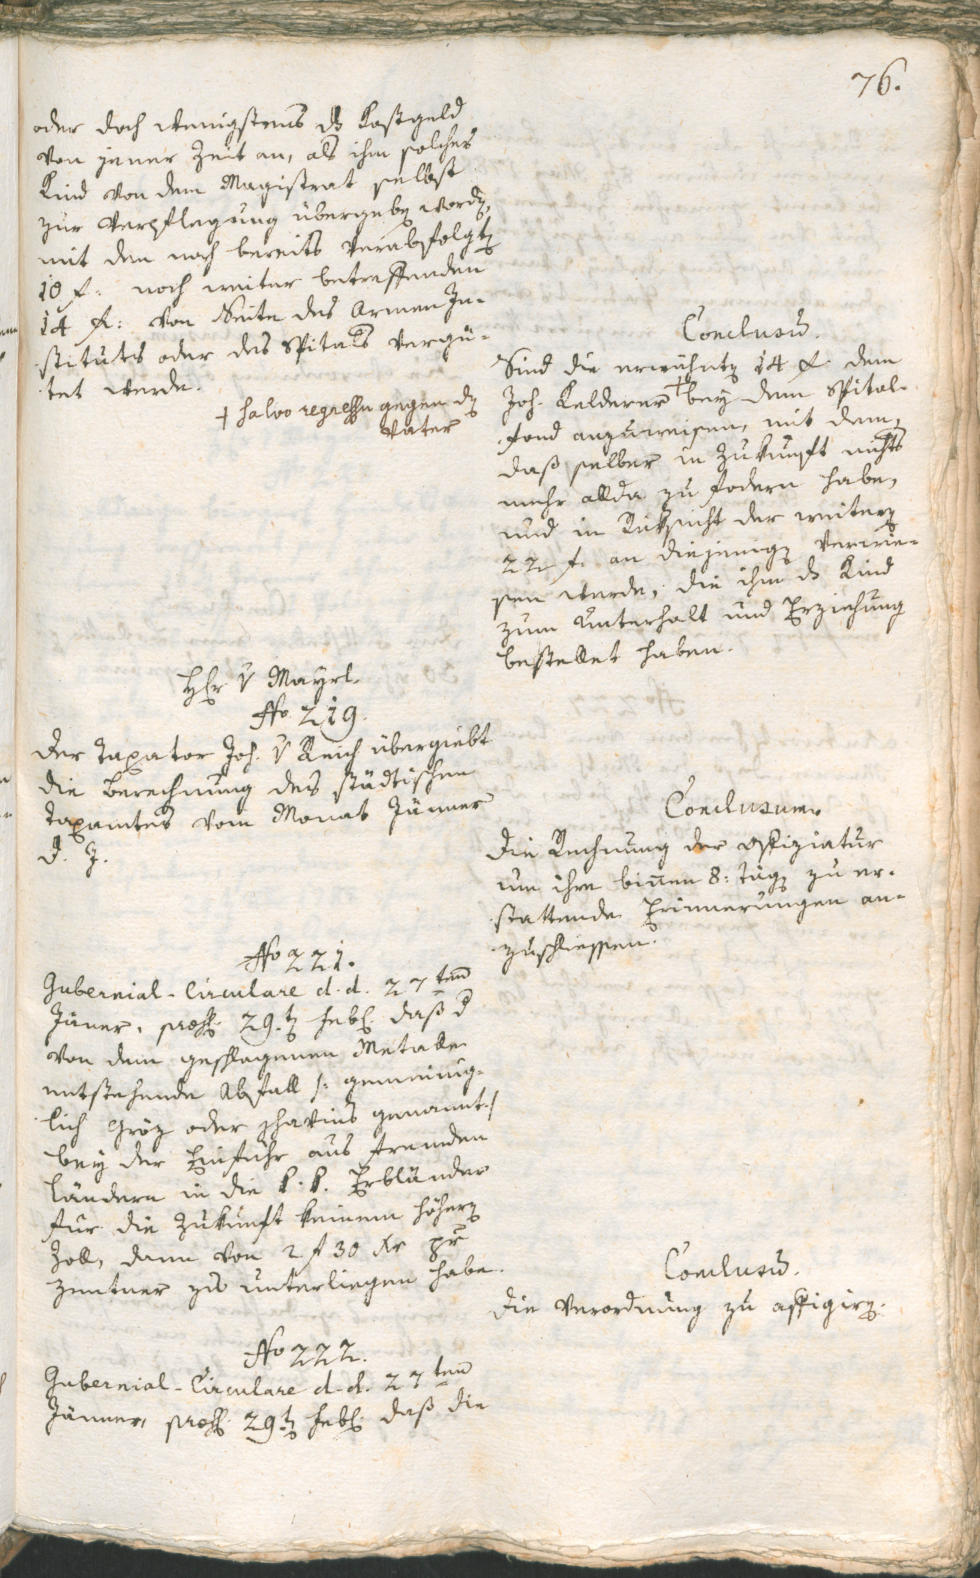 76.
oder doch wenigstens dz Kostgeld
von jener Zeit an, als ihm solches
Kind von dem Magistrat selbst
zur Verpflegung übergebn wordn,
mit den noch bereits verabfolgtn
10 f: noch weiter betreffenden
14 f: von Seite des Armen In-
stituts oder des Spitals vergü-
tet werde.
+ salvo regressu gegen dn
Vater
Conclusum.
Sind die erwähntn 14 f. dem
Joh. Kelderer + bey dem Spital-
fond anzuweisen, mit dem,
daß selber in Zukunft nichts
mehr allda zu fodern habe,
und in Rüksicht der weitern
22 f. an diejenign verwie-
sen werde, die ihm ds Kind
zum Unterhalt und Erziehung
bestellet haben.
Hr v Mayrl.
No 219.
Der Taxator Joh. v Reich übergiebt
die Berechnung des städtischen
Taxamtes vom Monat Jänner
d. J.
Conclusum.
Die Rechnung der Offiziatur
um ihre binnen 8: tägn zu er-
stattende Erinnerungen an-
zuschliessen.
No 221.
Gubernial-Circulare d. d. 27ten
Jäner, praes. 29.tn febr. daß d
von dem geschlagenen Metalle
entstehende Abfall /: gemeinig-
lich Gröz oder Schavins genannt :/
bey der Einfuhr aus fremden
Ländern in die k. k. Erbländer
für die Zukunft keinem höhern
Zoll, dann von 2 f 30 Xr pr
Zentner zu unterliegen habe.
Conclusum.
Die Verordnung zu affigirn.
No 222.
Gubernial-Circulare d. d. 27ten
Jänner, praes. 29tn febr. daß die